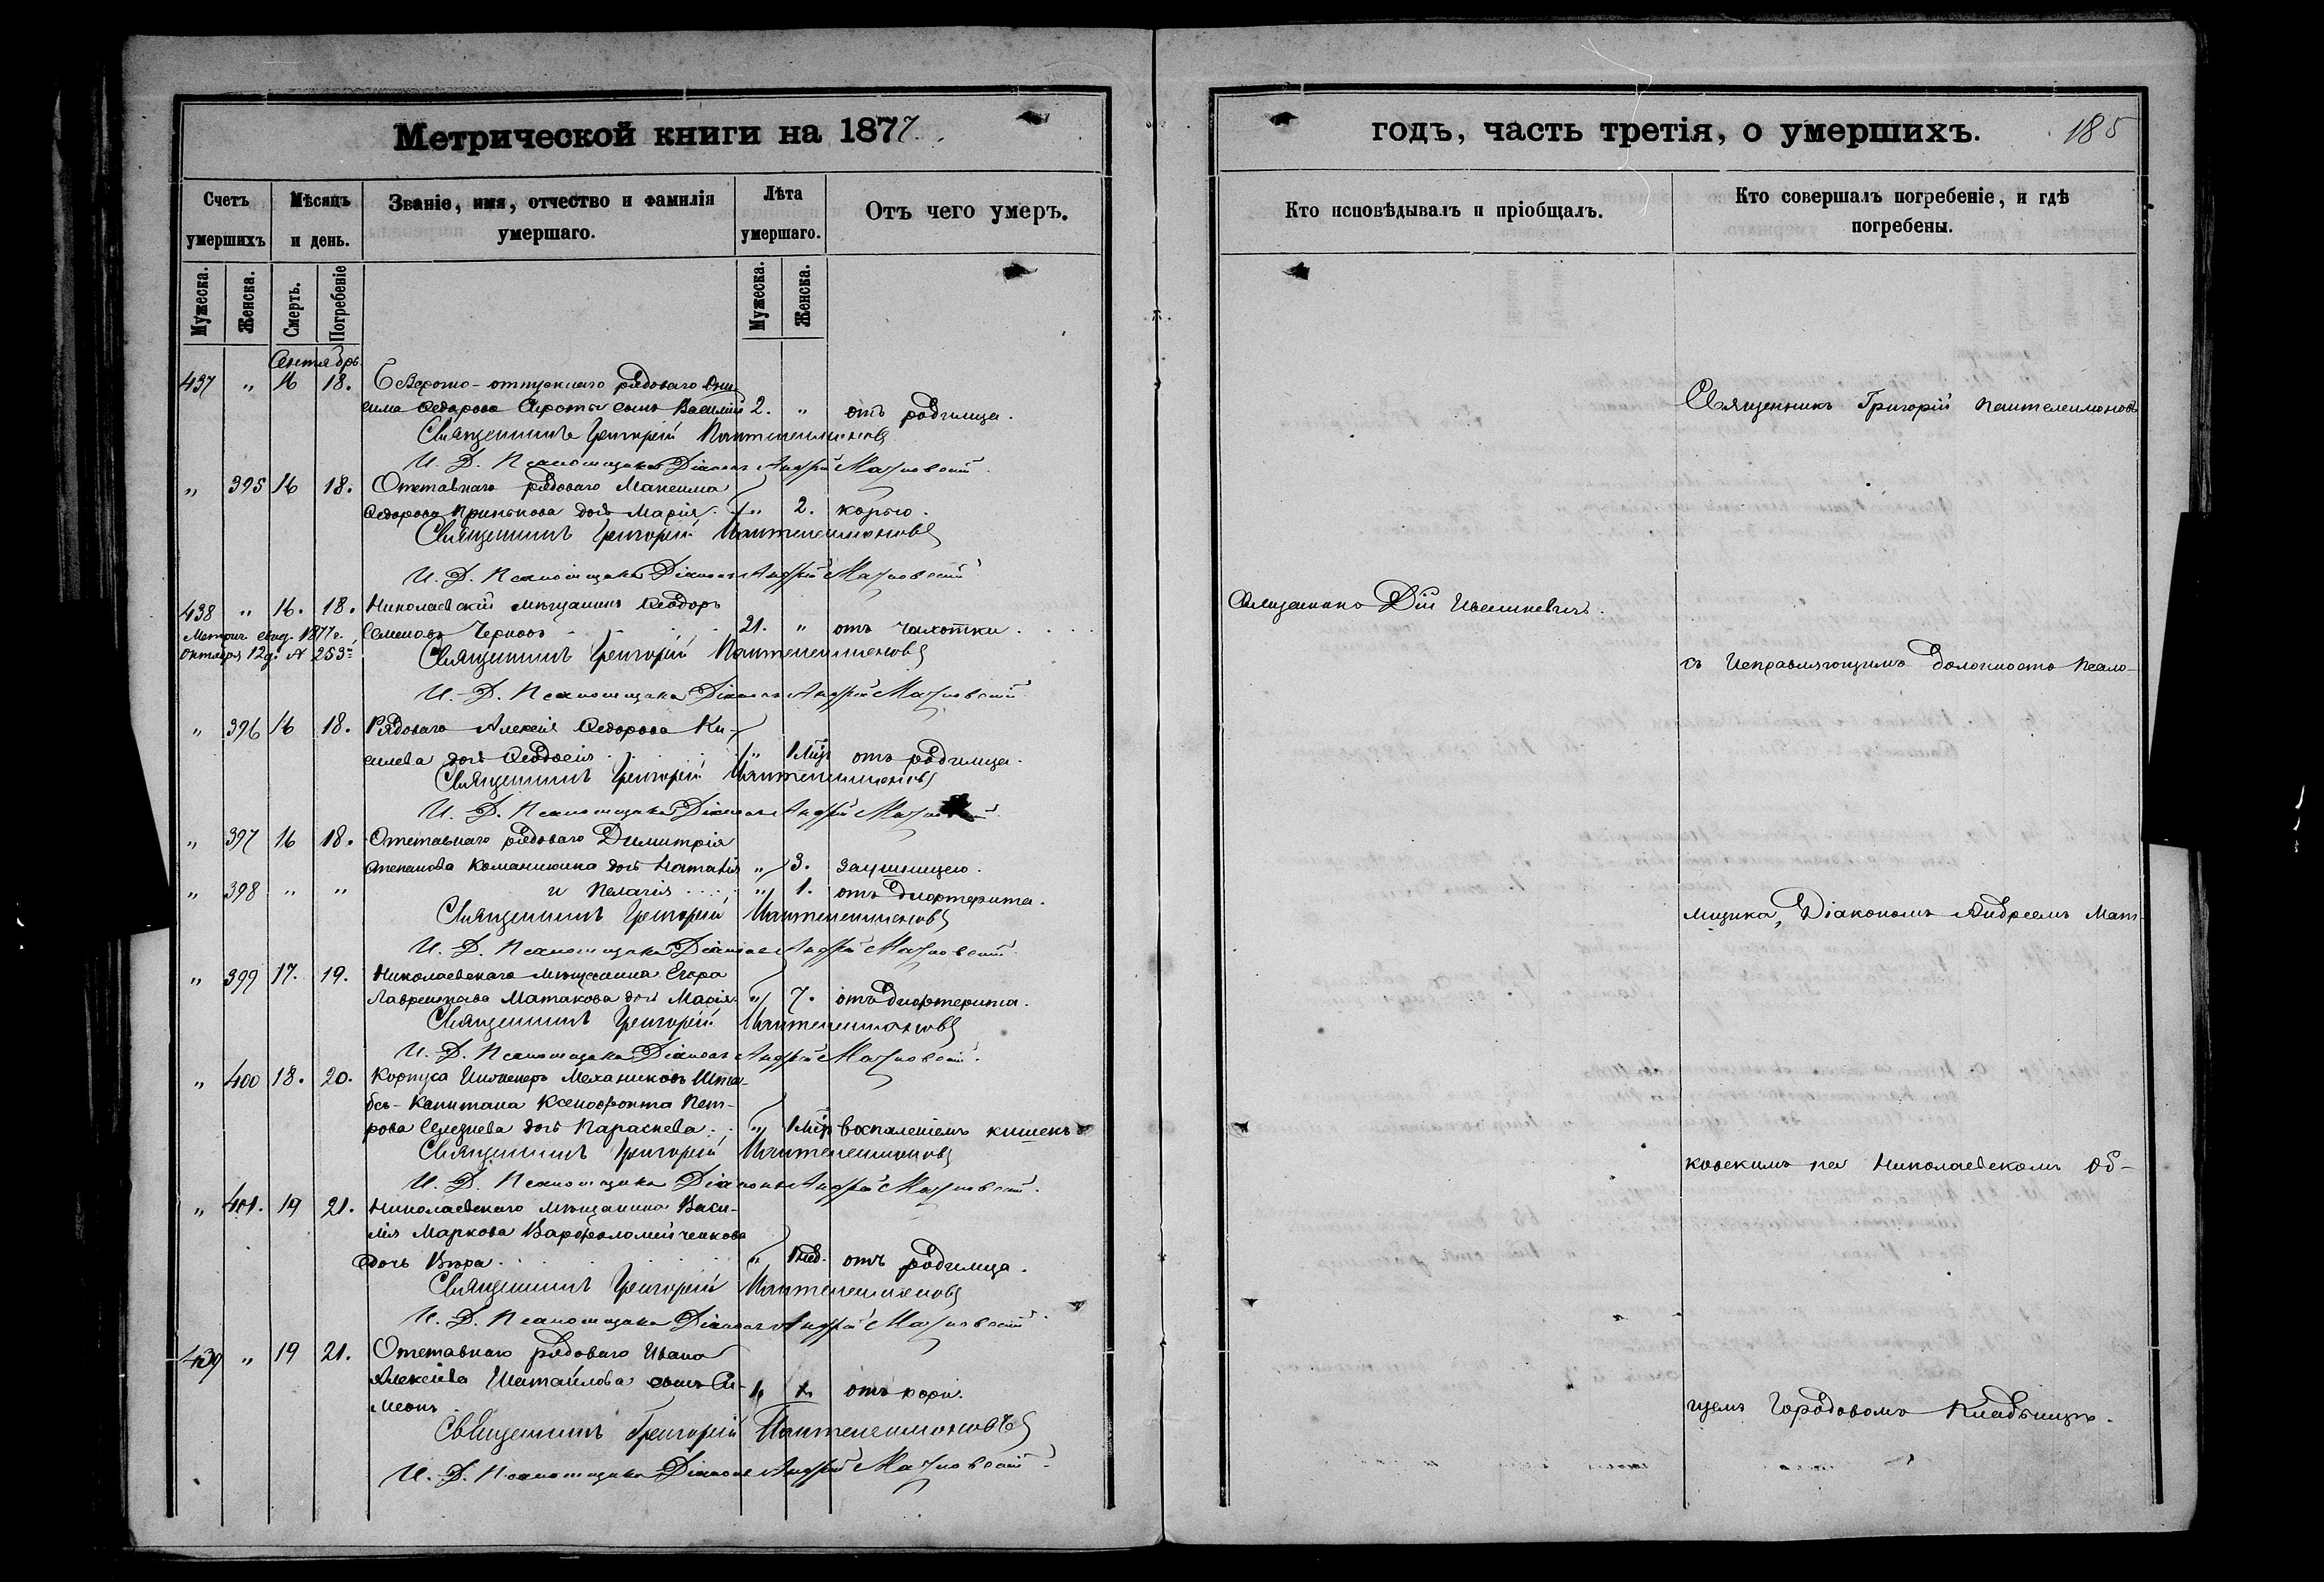 Метрической книги на 1877.
годъ, часть третія, о умершихъ.
185
Счетъ умершихъ
Мѣсяцъ и день.
Званіе, имя, отчество и фамилія умершаго.
Лѣта умершаго.
Отъ чего умеръ.
Кто исповѣдывалъ и пріобщалъ.
Кто совершалъ погребеніе, и гдѣ погребены.
Мужеска.
Женска.
Смерть.
Погребеніе
Мужеска.
Женска.
Сентябрь
437 " 16 18. рядоваго Они-
сима Ѳедорова Сироты сынъ Василій 2. " отъ родимца.
Священникъ Григорій Пантелеимоновъ
И. Д. Псаломщика Діаконъ Андрей
" 395 16 18. Отставнаго рядоваго Максима
Ѳедорова дочь Марія " 2. корью.
Священникъ Григорій Пантелеимоновъ
И. Д. Псаломщика Діаконъ Андрей
438 " 16. 18. Николаевскій мѣщанинъ Ѳеодоръ
Метрич. свид. 1877 г.
Октября 12 д. № 253
Семеновъ Черновъ 21. " отъ чахотки.
Священникъ Григорій Пантелеимоновъ
И. Д. Псаломщика Діаконъ Андрей
" 396 16 18. Рядоваго Алексія Ѳедорова Ки-
силева дочь Ѳеодосія " 1 мѣс. отъ родимца.
Священникъ Григорій Пантелеимоновъ
И. Д. Псаломщика Діаконъ Андрей
" 397 16 18. Отставнаго рядоваго Димитрія
Степанова дочь Наталія " 3. заушницею.
" 398 " " и Пелагія " 1. отъ дифтерита.
Священникъ Григорій Пантелеимоновъ
И. Д. Псаломщика Діаконъ Андрей
" 399 17. 19. Николаевскаго мѣщанина Егора
Лаврентіева Матакова дочь Марія " 7. отъ дифтерита.
Священникъ Григорій Пантелеимоновъ
И. Д. Псаломщика Діаконъ Андрей
" 400 18. 20. Корпуса Инженеръ Механиковъ Шта-
бсъ-Капитана Ксенофонта Пет-
рова Селезнева дочь Параскева " 1 мѣс. воспаленіемъ кишекъ
Священникъ Григорій Пантелеимоновъ
И. Д. Псаломщика Діаконъ Андрей
" 401. 19 21. Николаевскаго мѣщанина Васи-
лія Маркова Варфоломейченкова
дочь Вѣра " 1 нед. отъ родимца.
Священникъ Григорій Пантелеимоновъ
И. Д. Псаломщика Діаконъ Андрей
439 " 19 21. Отставнаго рядоваго Ивана
Алексіева Шатайлова сынъ Си-
меонъ отъ кори.
Священникъ Григорій Пантелеимоновъ
И. Д. Псаломщика Діаконъ Андрей
Священникъ Григорій Пантелеимоновъ
Священникъ
съ Исправляющимъ должность псало-
мщика, Діакономъ Андреемъ Мат-
ковскимъ на Николаевскомъ об-
щемъ Городовомъ Кладбищѣ.